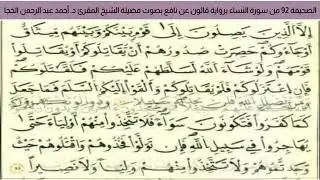 الصحيفة 92 من سورة النساء برواية قالون عن نافع بصوت فضيلة الشيخ المقرئ د. أحمد عبد الرحمن الخجا
إِلَّا الَّذِينَ يَصِلُونَ إِلَىٰ قَوْمٍ بَيْنَكُمْ وَبَيْنَهُم مِّيثَاقٌ
أَوْ جَاءُوكُمْ حَصِرَتْ صُدُورُهُمْ أَنْ يُقَاتِلُوكُمْ أَوْ يُقَاتِلُوا
قَوْمَهُمْ وَلَوْ شَاءَ اللَّهُ لَسَلَّطَهُمْ عَلَيْكُمْ فَلَقَاتَلُوكُمْ
كَمَا كَفَرُوا فَتَكُونُونَ سَوَاءً فَلَا تَتَّخِذُوا مِنْهُمْ أَوْلِيَاءَ حَتَّىٰ
يُهَاجِرُوا فِي سَبِيلِ اللَّهِ فَإِنْ تَوَلَّوْا فَخُذُوهُمْ وَاقْتُلُوهُمْ حَيْثُ
وَجَدتُّمُوهُمْ وَلَا تَتَّخِذُوا مِنْهُمْ وَلِيًّا وَلَا نَصِيرًا